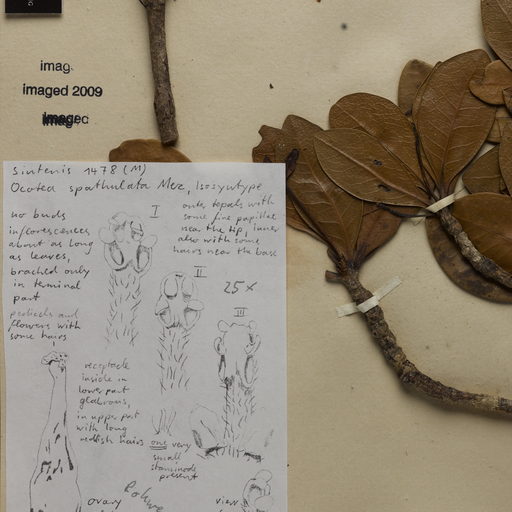 imag
imaged 2009
Sintenis 1478 (M)
Ocotea spathulata Mez, Isosyntype
no buds
inflorescences
about as long
as leaves,
brached only
in teminal
part
pedicels and
flowers with
some hairs
I
outer tepals with
some fine papillae
near the tip, inner
also with some
hairs near the base
II
25x
III
receptacle
inside in
lower part
glabrous,
in upper part
with long
reddish hairs
one very
small
staminode
present
ovary
Rohwer
view